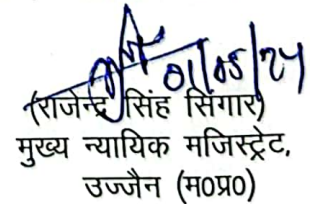 01/05/24
(राजेन्द्र सिंह सिंगार)
मुख्य न्यायिक मजिस्ट्रेट,
उज्जैन (म0प्र0)